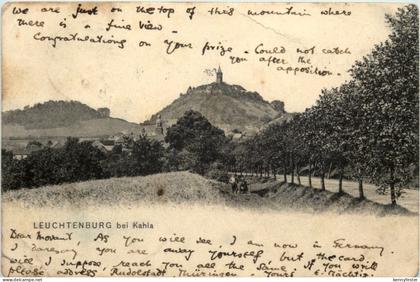 We are just on the top of this mountain where
there is a fine view.
Congratulations on your prize. Could not catch
you after the
apposition
LEUCHTENBURG bei Kahla
Dear As you will see, I am now in Germany
I daresay, you are away yourself, but the card
will I suppose, reach you all the same. If you will write
please address Rudolstadt Thüringen Yours